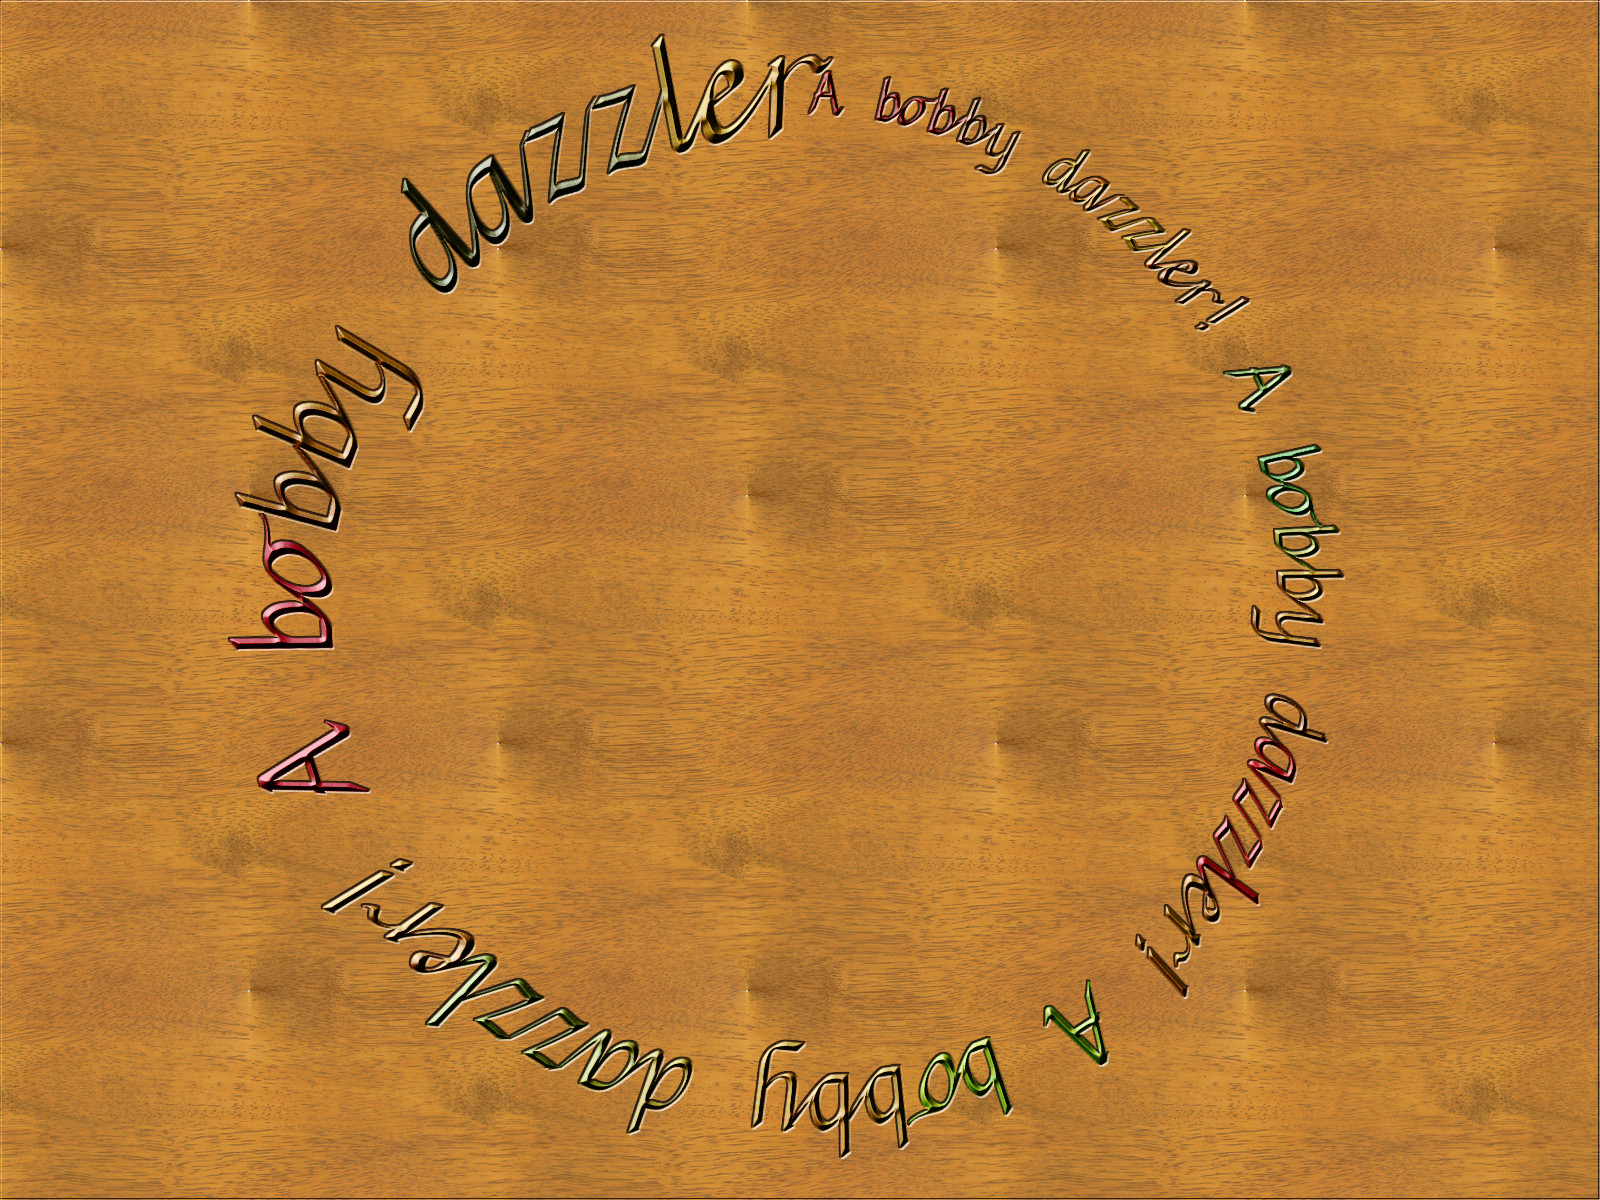 A bobby dazzler! A bobby dazzler! A bobby dazzler! A bobby dazzler